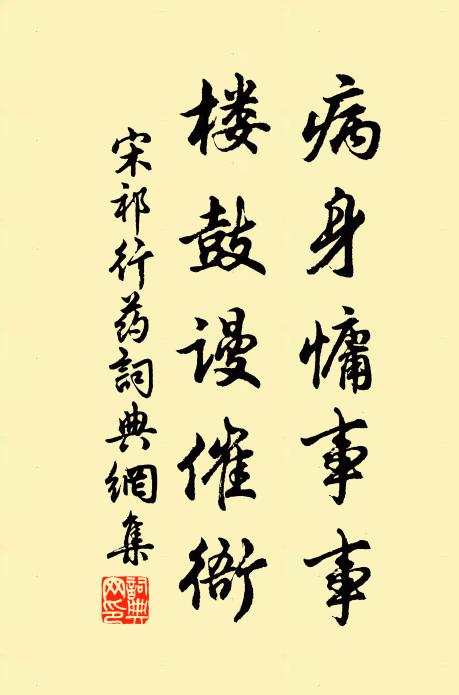 病身慵事事
楼鼓谩催衙
宋祁行药詞典網集
詞典网印